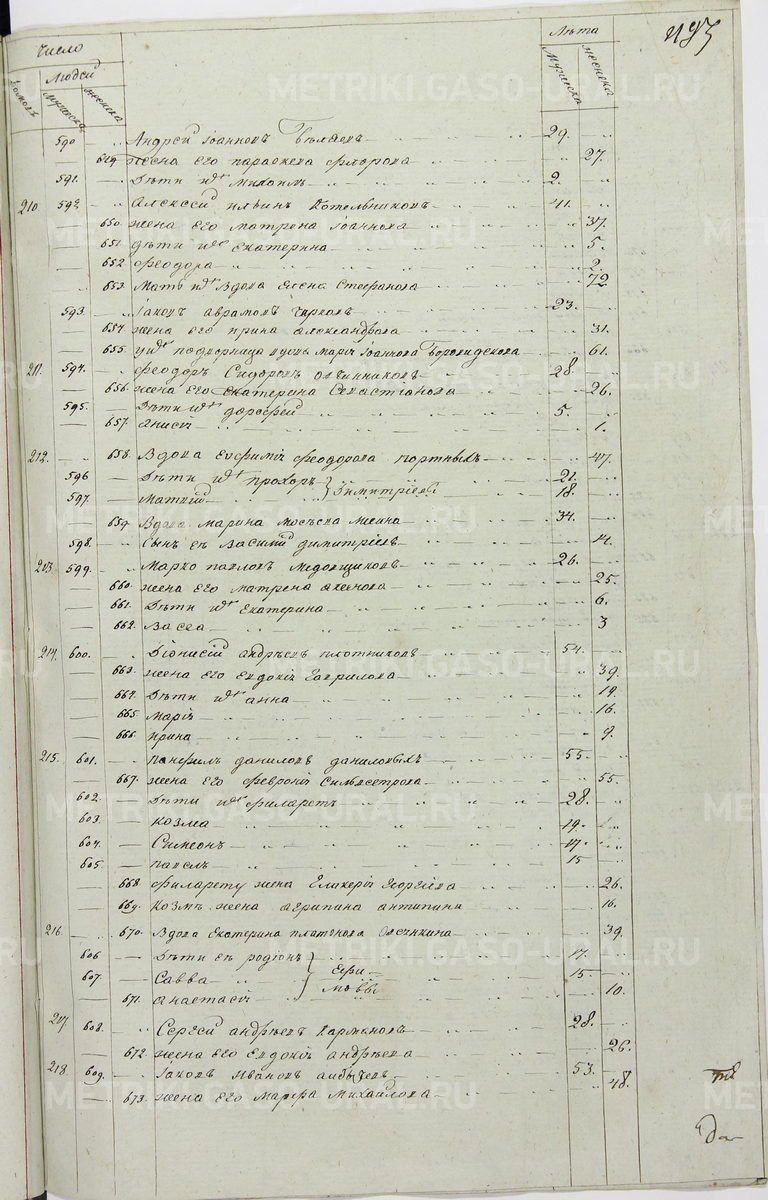 Число
Людей
Лѣта
домовъ мужеска женска мужеска женска
590 Андрей Іоанновъ Бѣляевъ 29.
649 жена его параскева флорова 27.
591. Дѣти ихъ михаилъ 2.
210 592. Алексей ильинъ Котельниковъ 41.
650 жена его матрена Іоаннова 37.
651 дѣти ихъ екатерина 5.
652 феодора 2.
653. Мать ихъ вдова елена Стефанова 72
593. Іаковъ аврамовъ 23.
654. жена его ирина александрова 31.
655. у нихъ марія Іоаннова 61.
211. 594. феодоръ Сидоровъ овчинниковъ 28.
656. жена его екатерина Севастіанова 26.
595. Дѣти ихъ дорофей 5.
657. анисія 1.
212. 658. Вдова евфимія феодорова портныхъ 47.
596 Дѣти ихъ прохоръ 21.
597. матвий Димитріевы 18.
659. Вдова марина мосѣева 34.
598. Сынъ ея василий димитріевъ 14.
213 599. Марко павловъ медовщиковъ 26.
660. жена его матрена 25.
661. Дѣти ихъ екатерина 6.
662. васса 3
214. 600. Діонисій андрѣевъ плотниковъ 54.
663. жена его евдокія гаврилова 39.
664. Дѣти ихъ анна 19.
665. марія 16.
666. ирина 9.
215. 601. панфилъ даниловъ даниловыхъ 55.
667. жена его февронія сильвестрова 55.
602. Дѣти ихъ филаретъ 28.
603. козма 19.
604. Симеонъ 17.
605. павелъ 15
668. филарету жена гликерія георгіева 26.
669. козмѣ жена агрипина антипина 16.
216. 670. Вдова екатерина платонова 39.
606 Дѣти ея родіонъ 17.
607. Савва Ефимовы 15.
671. анастасія 10.
217 608. Сергей андрѣевъ кармановъ 28.
672. жена его евдокія андрѣева 26.
218. 609. Іаковъ ивановъ 53.
673. жена его марфа михайлова 48.
METRIKI.GASO-URAL.RU